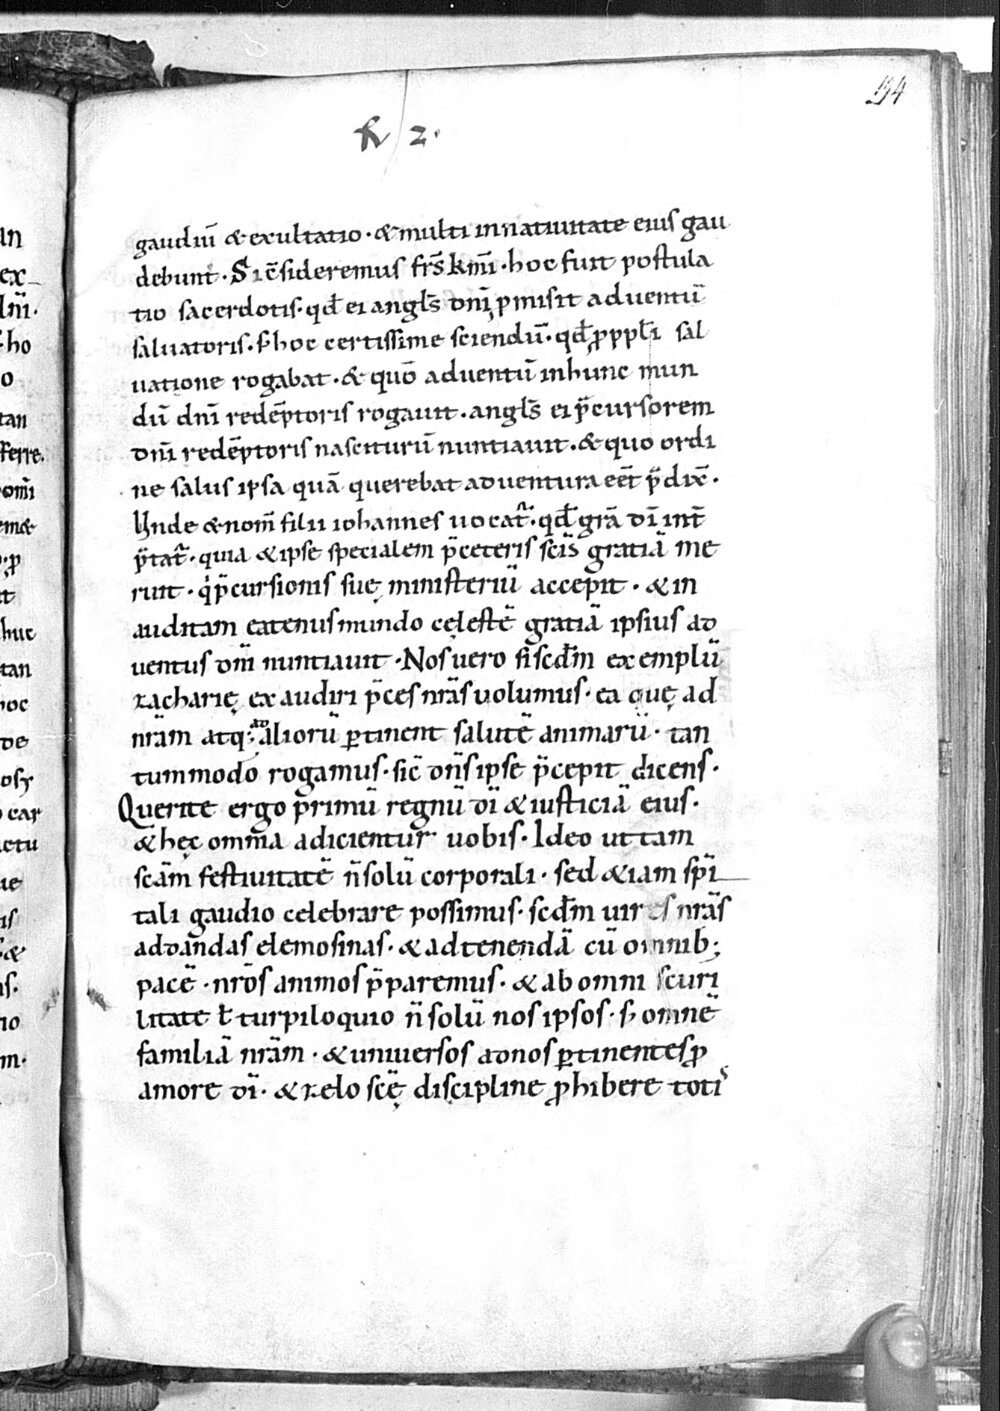 154
k 2.
gaudiū & exultatio · & multi in natiuitate eius gau
debunt · Si c̄sideremus frs̄ k̄mi · hoc fuit postula
tio sacerdotis · qđ ei angl̄s dn̄i ꝓmisit aduentū
saluatoris · S; hoc certissime sciendū · qđ ꝓ ppl̄i sal
uatione rogabat · & quō aduentū in hunc mun
dū dn̄i redēptoris rogauit · angl̄s ei p̄cursorem
dn̄i redēptoris nasciturū nuntiauit · & quo ordi
ne salus ipsa quā querebat aduentura eēt p̄dix̄ ·
Unde & nom̄ filii iohannes uocat̄ · qđ grā dī int̄
p̄tat̄ · quia & ipse specialem p̄ ceteris scīs gratiā me
ruit · q́ p̄cursionis suę ministeriū accepit · & in
auditam eatenus mundo cęlestē gratiā ipsius ad
uentus dn̄i nuntiauit · Nos uero si scđm exemplū
zacharię exaudiri p̄ces nr̄as uolumus · ea quę ad
nr̄am atq; ad aliorū ꝑtinent salutē animarū · tan
tummodo rogamus · sic̄ dn̄s ipse p̄cepit dicens ·
Querite ergo primū regnū dī & iusticiā eius ·
& hęc om̄ia adicientur uobis · Ideo ut tam
scām festiuitatē n̄ solū corporali · sed &iam spī
tali gaudio celebrare possimus · scđm uires nr̄as
ad dandas elemosinas · & ad tenendā cū omnib;
pacē · nrōs animos p̄paremus · & ab omni scuri
litate ł turpiloquio n̄ solū nos ipsos · s; omnē
familiā nr̄am · & uniuersos ad nos ꝑtinentes ꝓ
amore dī · & zelo scę̄ discipline ꝓhibere toti